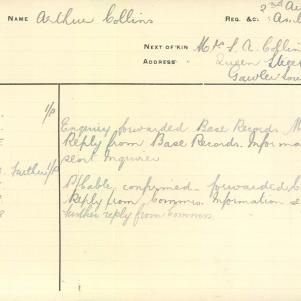 NAME Arthur Collins
REG. &C.
NEXT OF KIN Mrs S. A. Collin
ADDRESS Queen Street
Gawler Sou
1/P
Enquiry forwarded Base Records. M
Reply from Base Records. Informa
sent Inquirer
Further 1/P
B/Cable, confirmed. forwarded C
Reply from Commrs. Information se
further reply from Commrs.